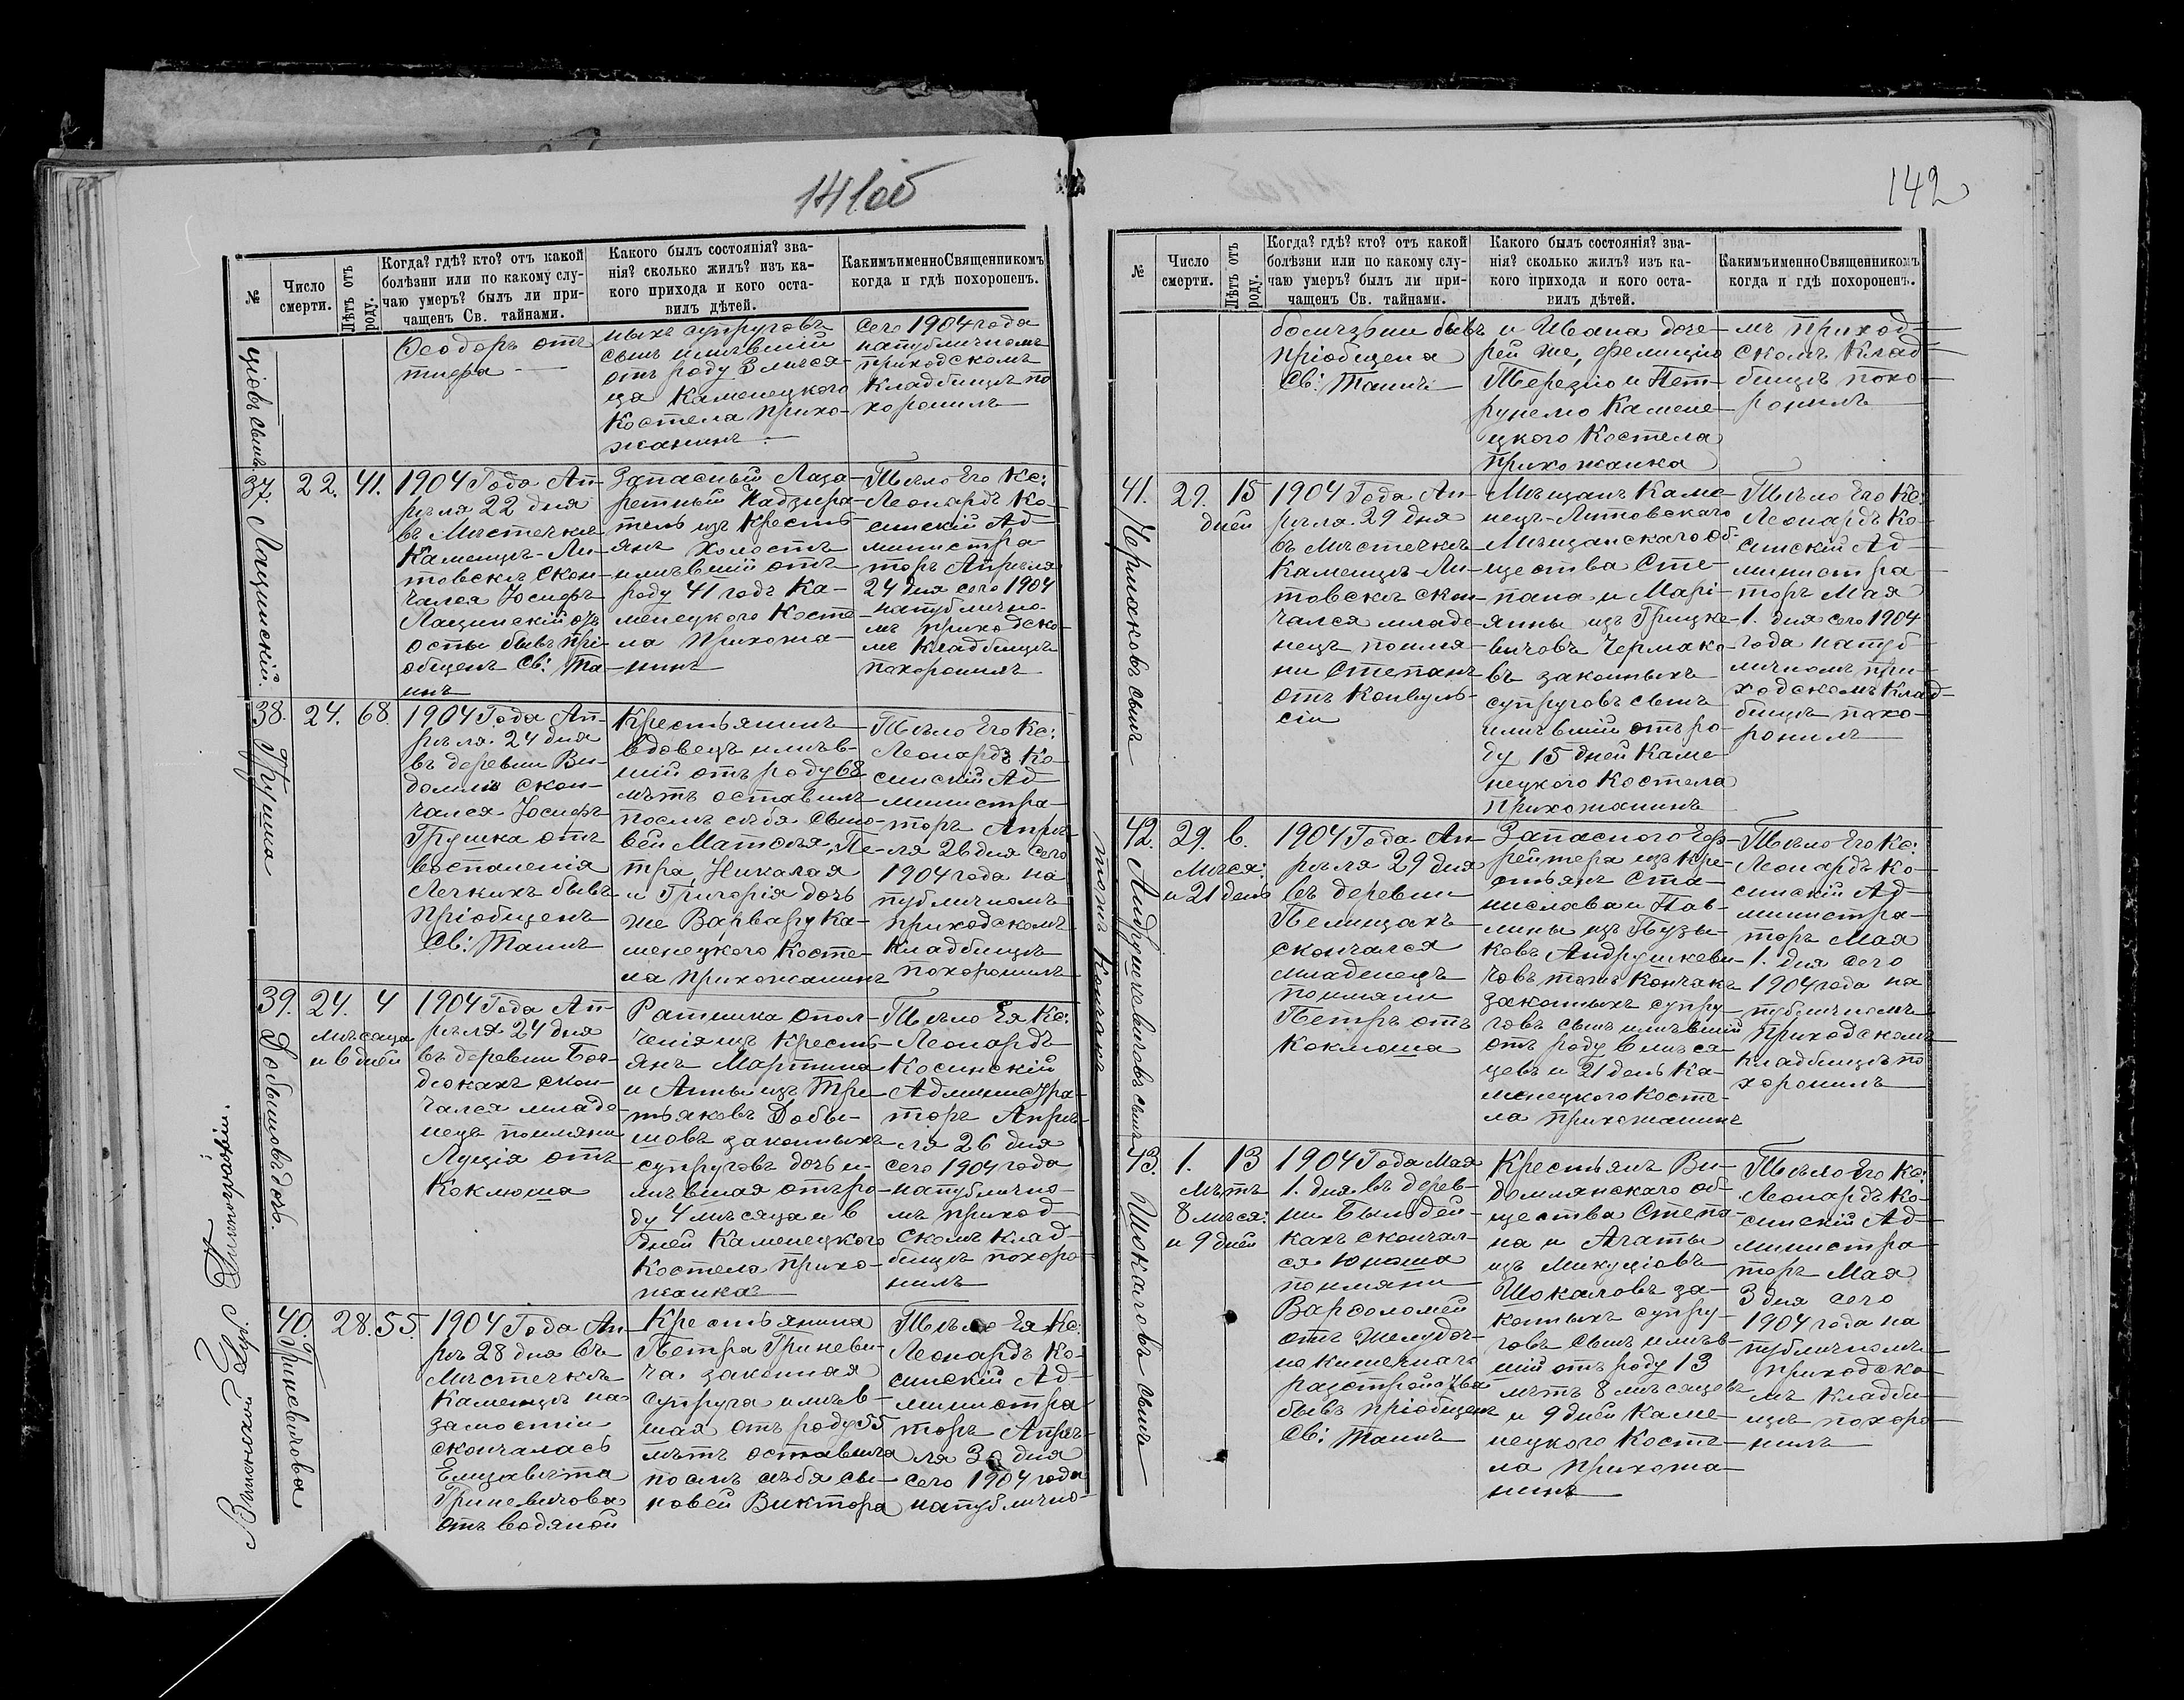 141об
№
Число смерти.
Лѣтъ отъ роду.
Когда? гдѣ? кто? отъ какой
болѣзни или по какому слу-
чаю умеръ? былъ ли при-
чащенъ Св. тайнами.
Какого былъ состоянія? зва-
нія? сколько жилъ? изъ ка-
кого прихода и кого оста-
вилъ дѣтей.
Какимъ именно Священникомъ
когда и гдѣ похороненъ.
Ѳеодоръ отъ
тифа
ныхъ супруговъ
сынъ имѣвшій
отъ роду 3 мѣся-
ца Каменецкого
Костела прихо-
жанинъ
сего 1904 года
на публичномъ
приходскомъ
Кладбищѣ по
хоронилъ
37.
Лащинскій.
22.
41.
1904 Года Ап-
рѣля 22 дня
въ Мѣстечкѣ
Каменцѣ-Ли-
товскѣ скон-
чался Іосифъ
Лащинскій отъ
оспы бывъ прі-
общенъ Св: Та
инъ
Запасный Лаза-
ретный Надзира-
тель изъ Кресть-
янъ холостъ
имѣвшій отъ
роду 41 годъ Ка-
менецкого Косте-
ла Прихожа-
нинъ
Тѣло Его Кс:
Леонардъ Ко-
синскій Ад-
министра-
торъ Апрѣля
24 дня сего 1904
на публично-
мъ приходско-
мъ Кладбищѣ
похоронилъ
38.
Грушка
24.
68.
1904 Года Ап-
рѣля 24 дня
въ деревни Ви-
домлѣ скон-
чался Іосифъ
Грушка отъ
воспаленія
Легкихъ бывъ
пріобщенъ
Св: Таинъ
Крестьянинъ
вдовецъ имѣв-
шій отъ роду 68
лѣтъ оставилъ
послѣ себя сыно-
вей Матвѣя, Пе-
тра, Николая
и Григорія дочь
же Варвару Ка-
менецкого Косте-
ла прихожанинъ
Тѣло Его Кс:
Леонардъ Ко-
синскій Ад-
министра-
торъ Апрѣ-
ля 26 дня сего
1904 года на
публичномъ
приходскомъ
Кладбищѣ
похоронилъ
39.
Добышовъ дочь.
24.
4
мѣсаца
и 6 дней
1904 Года Ап-
рѣля 24 дня
въ деревни
скон-
чался младе-
нецъ поимяни
Луція отъ
Коклюша
Ратника опол-
ченія изъ Кресть-
янъ Мартина
и Анны изъ Тре-
тьяковъ Добы-
шовъ законныхъ
супруговъ дочь и-
мѣвшая отъ ро-
ду 4 мѣсяца и 6
дней Каменецкого
Костела прихо-
жанка
Тѣло Ея Кс:
Леонардъ
Косинскій
Администра-
торъ Апрѣ-
ля 26 дня
сего 1904 года
на публично-
мъ приход-
скомъ Клад-
бищѣ похоро-
нилъ
40.
Гриневичова
28.
55.
1904 Года Ап-
рѣ 28 дня въ
Мѣстечкѣ
Каменцѣ на
замостіи
скончалась
Елизавѣта
Гриневичова
отъ водяной
Крестьянина
Петра Гриневи-
ча законная
супруга имѣв-
шая отъ роду 55
лѣтъ оставила
послѣ себя сы-
новей Виктора
Тѣло Ея Кс:
Леонардъ Ко-
синскій Ад-
министра
торъ Апрѣ-
ля 30 дня
сего 1904 года
на публично-
142
№
Число смерти.
Лѣтъ отъ роду.
Когда? гдѣ? кто? отъ какой
болѣзни или по какому слу-
чаю умеръ? былъ ли при-
чащенъ Св. тайнами.
Какого былъ состоянія? зва-
нія? сколько жилъ? изъ ка-
кого прихода и кого оста-
вилъ дѣтей.
Какимъ именно Священникомъ
когда и гдѣ похороненъ.
болѣзни бывъ
пріобщена
Св: Таинъ
и Ивана доче-
рей же, Фелицію
Терезію и Пет-
рунелю Камене-
цкого Костела
прихожанка
мъ приход-
скомъ Клад-
бищѣ похо-
ронилъ
41.
Чермаковъ сынъ
29.
15
дней
1904 Года Ап-
рѣля 29 дня
въ Мѣстечкѣ
Каменцѣ-Ли-
товскѣ скон-
чался младе-
нецъ поимя-
ни Степанъ
отъ Конвуль-
сіи
Мѣщанъ Каме-
нецъ-Литовскаго
Мѣщанскаго об-
щества Сте-
пана и Марі-
янны изъ Грицке-
вичовъ Чермако-
въ законныхъ
супруговъ сынъ
имѣвшій отъ ро-
ду 15 дней Каме-
нецкого Костела
прихожанинъ
Тѣло Его Кс:
Леонардъ Ко-
синскій Ад-
министра-
торъ Мая
1. дня сего 1904
года на пуб-
личномъ при-
ходскомъ Клад-
бищѣ похо-
ронилъ
42.
Андрушкевичовъ сынъ
тожъ Кончакъ
29.
6.
Мѣся:
и 21 день
1904 Года Ап-
рѣля 29 дня
въ деревни
Пелищахъ
скончался
младенецъ
поимяни
Петръ отъ
Коклюша
Запасного Еф-
рейтера изъ Кре-
стьянъ Ста-
нислава и Пав-
лины изъ Пузы-
ковъ Андрушкеви-
човъ тожъ Кончакъ
законныхъ супру-
говъ сынъ имѣвшій
отъ роду 6 мѣся-
цевъ и 21 день Ка-
менецкого Косте-
ла прихожанинъ
Тѣло Его Кс:
Леонардъ Ко-
синскій Ад-
министра-
торъ Мая
1. дня сего
1904 года на
публичномъ
приходскомъ
Кладбищѣ по
хоронилъ
43.
Шокаловъ сынъ
1.
13
лѣтъ
8 мѣся:
и 9 дней
1904 Года Мая
1. дня въ дерев-
ни
скончал-
ся Юноша
поимяни
Варѳоломей
отъ Желудоч-
но кишечнаго
разстройства
бывъ пріобщенъ
Св: Таинъ
Крестьянъ Ви-
домлянскаго об-
щества Степа-
на и Агаты
изъ Микуціовъ
Шокаловъ за-
конныхъ супру-
говъ сынъ имѣв-
шій отъ роду 13
лѣтъ 8 мѣсяцевъ
и 9 дней Каме-
нецкого Косте-
ла прихожа-
нинъ
Тѣло Его Кс:
Леонардъ Ко-
синскій Ад-
министра-
торъ Мая
3 дня сего
1904 года на
публичномъ
приходско-
мъ Кладби-
щѣ похоро-
нилъ